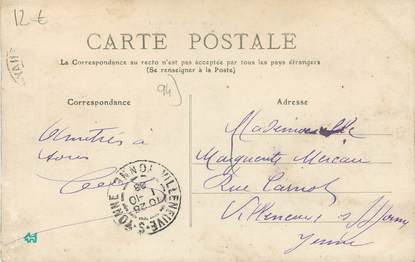 12 €
CARTE POSTALE
La Correspondance au recto n'est pas acceptée par tous les pays étrangers
(Se renseigner à la Poste)
94)
Correspondance
Adresse
Amitiés à
tous
Mademoiselle
Marguerite Moreau
Rue Carnot
Villeneuve s/ Yonne
Yonne
VILLENEUVE-S-YONNE
YONNE